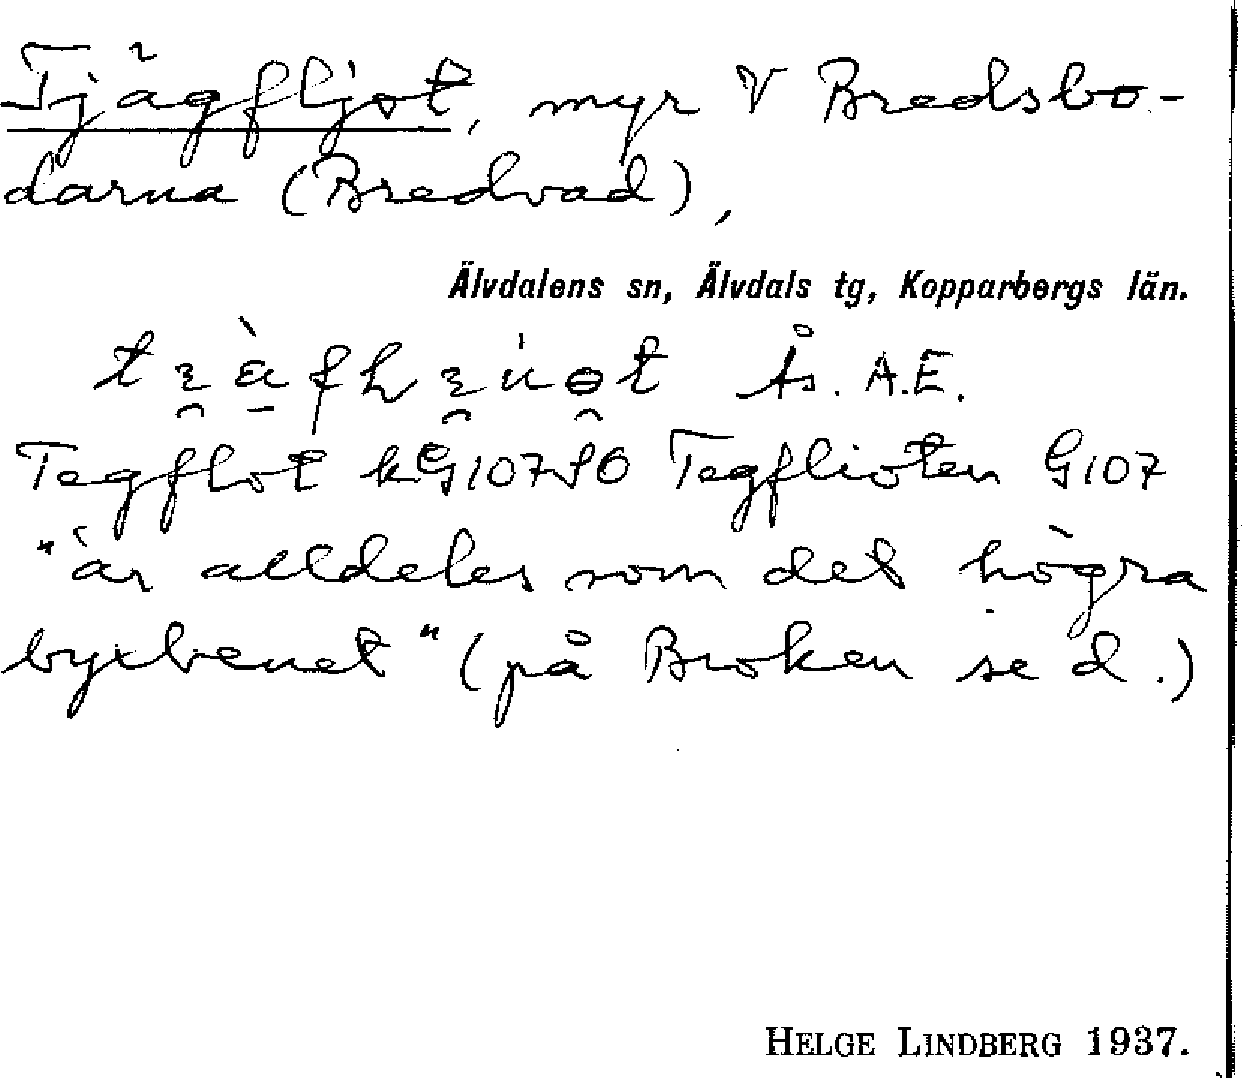 Tjägfljot, myr V Bredsbo-
darna (Bredvad),
Älvdalens sn, Älvdals tg, Kopparbergs län.
Ås. A.E.
Tegflot kG107 SO Tegflioten G107
"är alldeles som det högra
byxbenet" (på Broken se d.)
HELGE LINDBERG 1937.